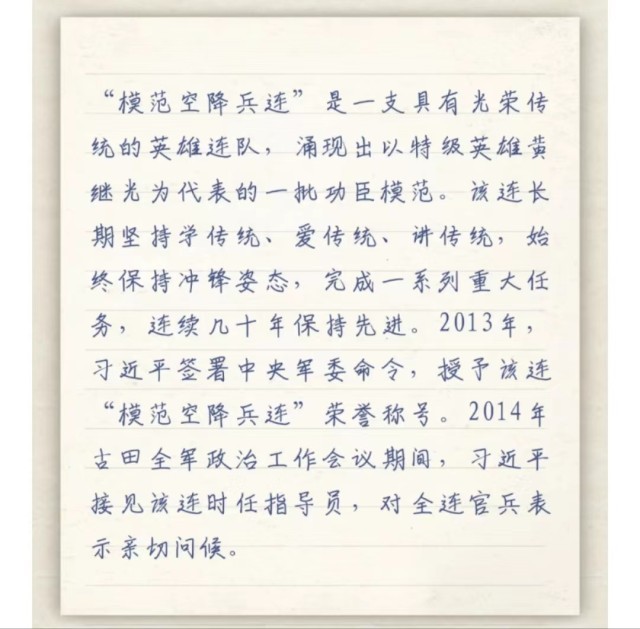 “模范空降兵连”是一支具有光荣传
统的英雄连队，涌现出以特级英雄黄
继光为代表的一批功臣模范。该连长
期坚持学传统、爱传统、讲传统，始
终保持冲锋姿态，完成一系列重大任
务，连续几十年保持先进。2013年，
习近平签署中央军委命令，授予该连
“模范空降兵连”荣誉称号。2014年
古田全军政治工作会议期间，习近平
接见该连时任指导员，对全连官兵表
示亲切问候。